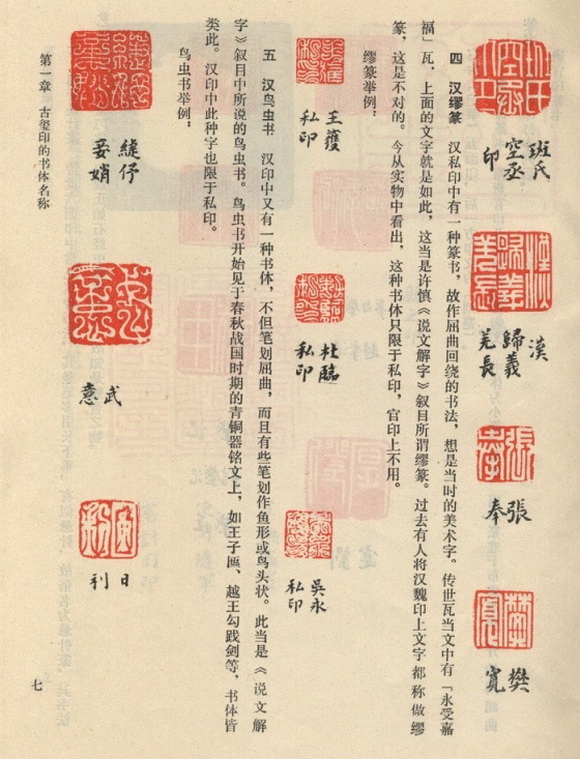 班氏
空丞
印
漢
歸義
羌長
張
奉
樊
寬
四　汉缪篆　汉私印中有一种篆书，故作屈曲回绕的书法，想是当时的美术字。传世瓦当文中有「永受嘉
福」瓦，上面的文字就是如此，这当是许慎《说文解字》叙目所谓缪篆。过去有人将汉魏印上文字都称做缪
篆，这是不对的。今从实物中看出，这种书体只限于私印，官印上不用。
缪篆举例：
王獲
私印
杜臨
私印
吳永
私印
五　汉鸟虫书　汉印中又有一种书体，不但笔划屈曲，而且有些笔划作鱼形或鸟头状。此当是《说文解
字》叙目中所说的鸟虫书。鸟虫书开始见于春秋战国时期的青铜器铭文上，如王子匜、越王勾践剑等，书体皆
类此。汉印中此种字也限于私印。
鸟虫书举例：
緁伃
妾娋
武
意
日
利
第一章　古玺印的书体名称
七